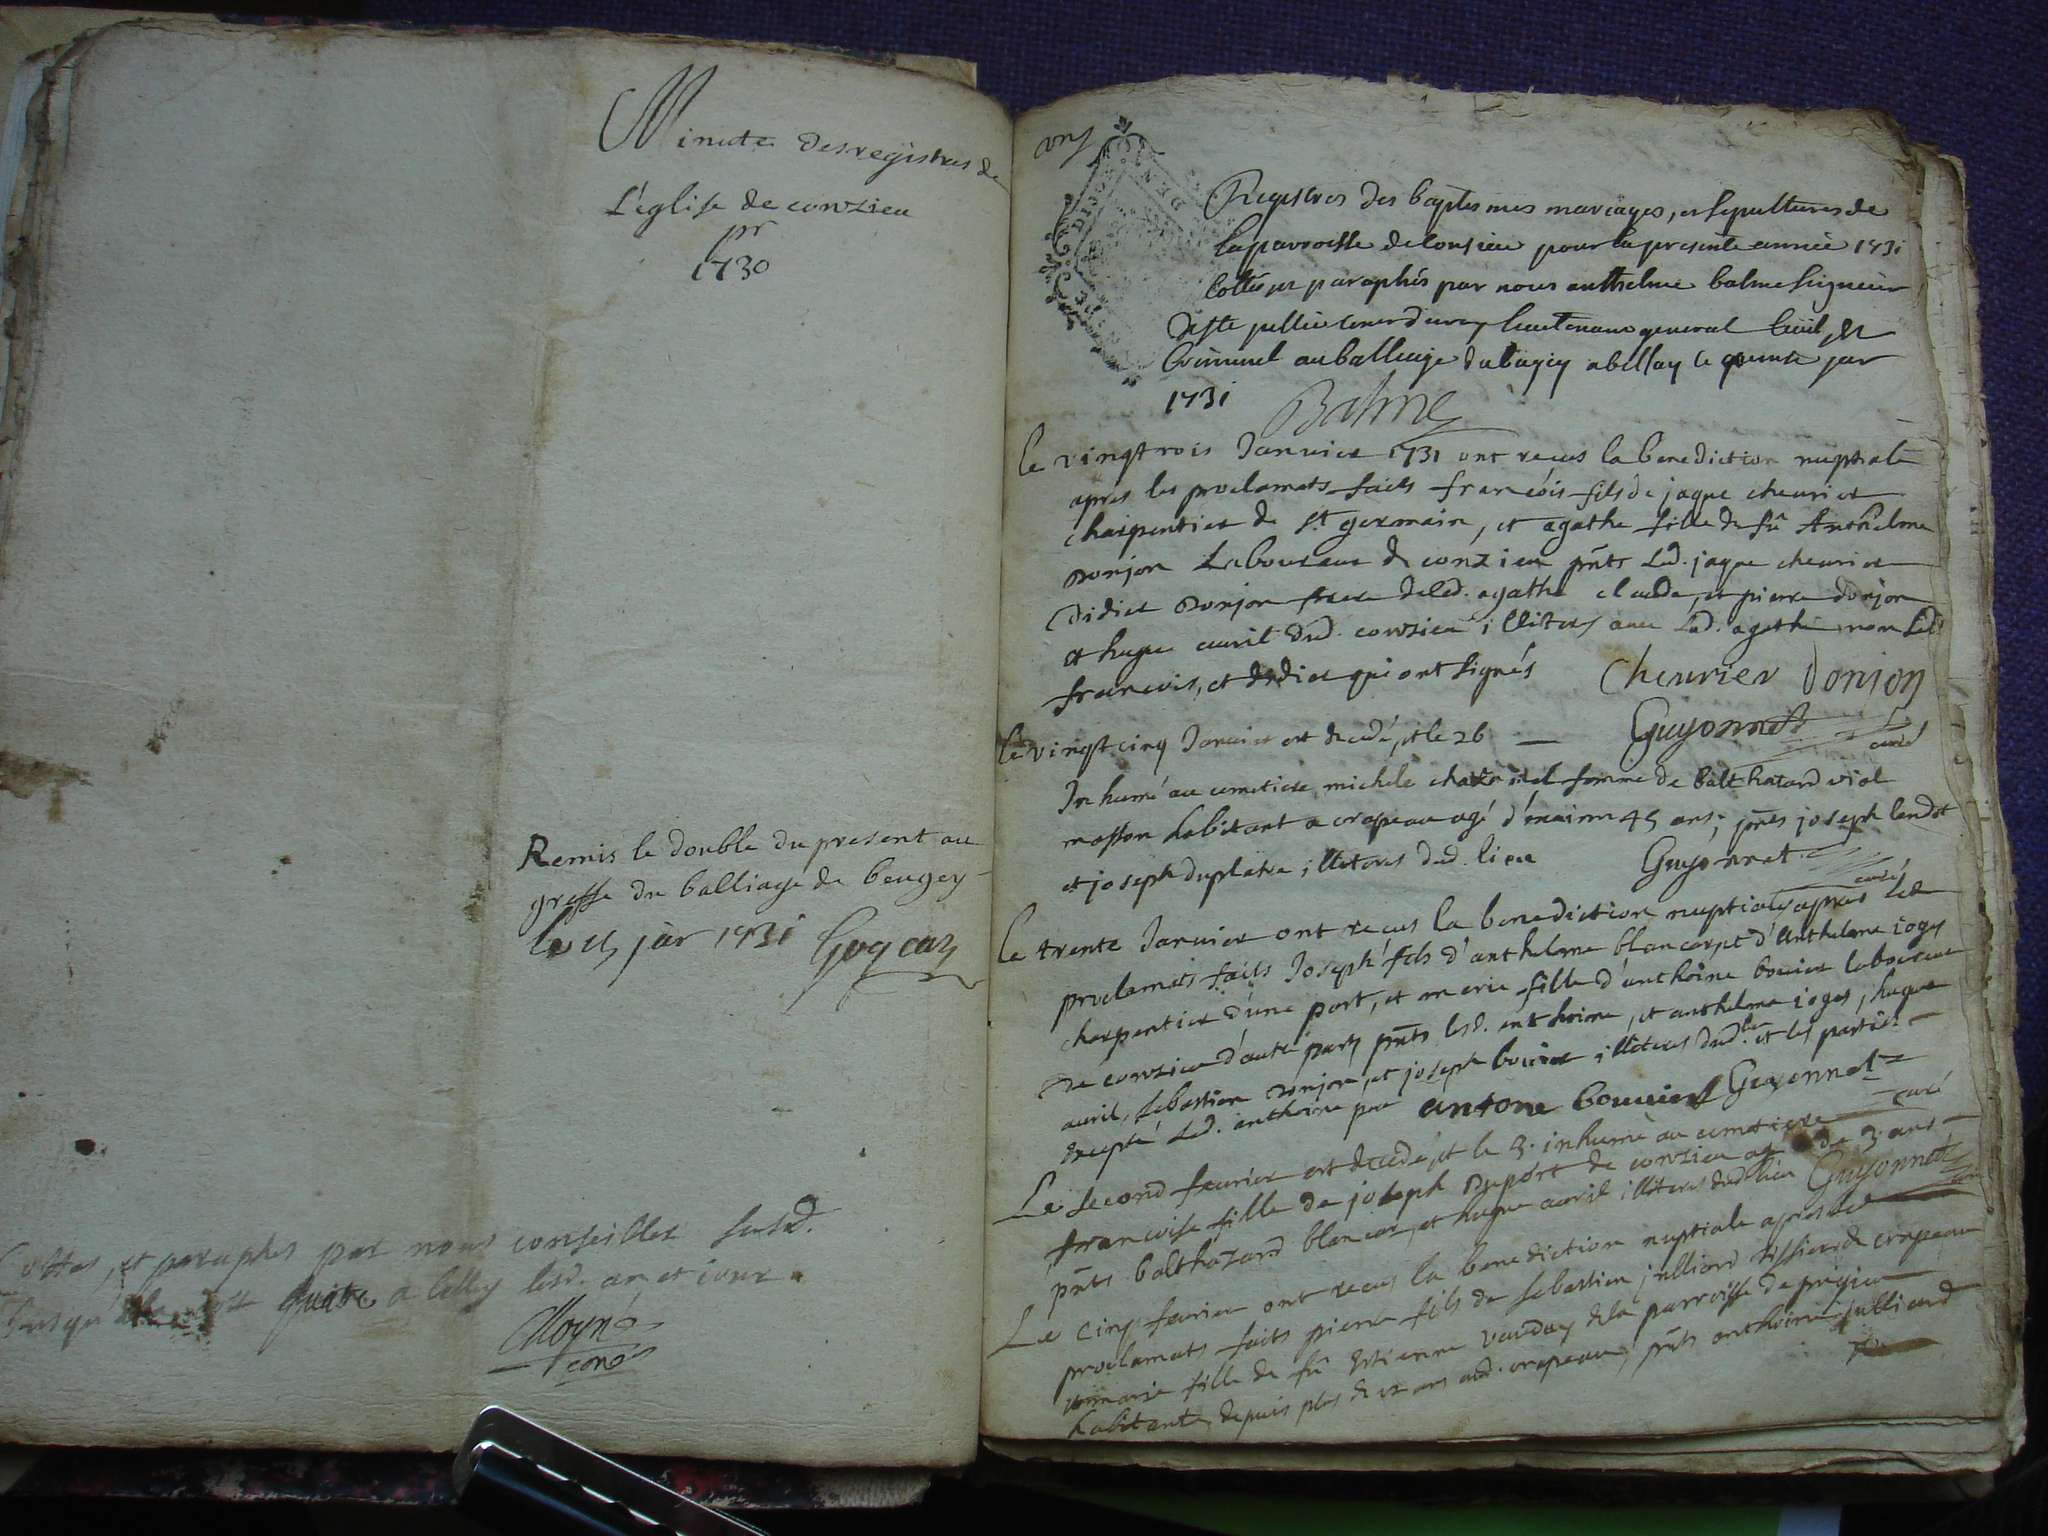 Minute des registres de
L'église de conzieu
pr
1730
Remis le double du present au
greffe du balliage de beugey
le 15 jár 1731
Cottés, et paraphés par nous conseiller susd.
jusqu' quatre a belley lesd. an et jour
Moyne
cons
DIOC GEN
Registres des baptesmes mariages, et sepultures de
la parroesse de Consieu pour la presente année 1731
Cottés et paraphés par nous anthelme balme seigneur
lieutenant general Civil et
Criminel au balliage du bugey a bellay le quinse jar
1731
Balme
le vingtrois Janvier 1731 ont recus la benediction nuptiale
apres les proclamats faits francóis fils de jaque cheurier
charpentier de st germain, et agathe fille de fû Anthelme
Donjon Laboureur de conzieu pnts Led. jaque cheurier
Didier Donjon frere de lad. agathe claude, et pierre donjon
et hugue auril dud. conzieu illiteres avec Lad. agathe non Led
francois, et didier qui ont signés Cheurier Donjon
Guyonnet curé
le vingt cinq Janvier est decedé, et le 26 —
Inhumé au cemetiere michele femme de balthazard viol
masson habitant a crapeau agé d'enuiron 45 ans; pnts joseph landot
et joseph duplatre illiteres dud. lieu Guyonnet curé
le trente Janvier ont recus la benediction nuptiale apres les
proclamats faits Joseph fils d'anthelme d'Anthelme joguy
charpentier d'une part, et marie fille d'anthoine bouier laboureur
de conzieu d'autre part, pnts lesd. anthoine, et anthelme joguy, hugue
auril, sebastien donjon, et joseph bouier illiteres dud. lieu et les parties
excepté Led. anthoine pere antone bouuier Guyonnet curé
Le second feurier est decedé, et le 3. inhumé au cemetiere
francoise fille de joseph Duport de conzieu de 3. ans
pnts balthazard blancar, et hugue auril illiteres dud. lieu Guyonnet
Le cinq feurier ont recus la benediction nuptiale apres les
proclamats faits pierre fils de sebastien julliard tissier de crapeau
et marie fille de fû Estienne vauday de la parroisse de
habitante depuis plus de ans aud. crapeau, pnts anthoine julliard